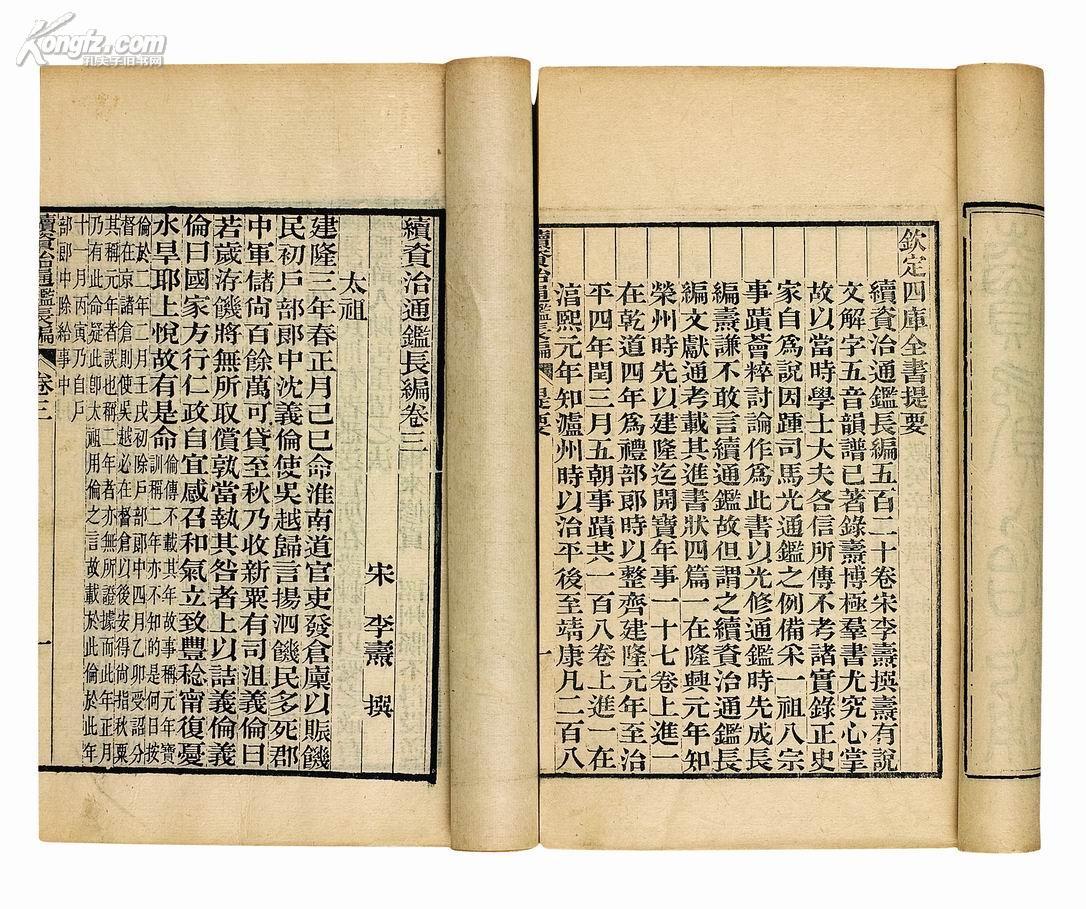 Kongfz.com
孔夫子旧书网
欽定四庫全書提要
續資治通鑑長編五百二十卷宋李燾撰燾有說
文解字五音韻譜已著錄燾博極羣書尤究心掌
故以當時學士大夫各信所傳不考諸實錄正史
家自爲說因踵司馬光通鑑之例備采一祖八宗
事蹟薈粹討論作爲此書以光修通鑑時先成長
編燾謙不敢言續通鑑故但謂之續資治通鑑長
編文獻通考載其進書狀四篇一在隆興元年知
榮州時先以建隆迄開寶年事一十七卷上進一
在乾道四年爲禮部郎時以整齊建隆元年至治
平四年閏三月五朝事蹟共一百八卷上進一在
淳熙元年知瀘州時以治平後至靖康凡二百八
續資治通鑑長編
提要
一
續資治通鑑長編卷三
宋 李燾 撰
太祖
建隆三年春正月己巳命淮南道官吏發倉廩以賑饑
民初戶部郎中沈義倫使吳越歸言揚泗饑民多死郡
中軍儲尙百餘萬可貸至秋乃收新粟有司沮義倫曰
若歲洊饑將無所取償孰當執其咎者上以詰義倫義
倫曰國家方行仁政自宜感召和氣立致豐稔甯復憂
水旱耶上悅故有是命
倫傳不載其年故事稱元年寶
訓稱二年亦不知的是何日按
倫於二年二月壬戌初除戶部郎中四月乙卯受詔分
督在京諸倉則使吳越必在督倉以後安得尙指秋粟
其稱元年者誤也稱二年者亦無所證據而此年正月
乃有此命疑此卽太祖用倫之言故載於此倫於此年
十一月丙寅乃自戶
部郎中除給事中
續資治通鑑長編
卷三
一